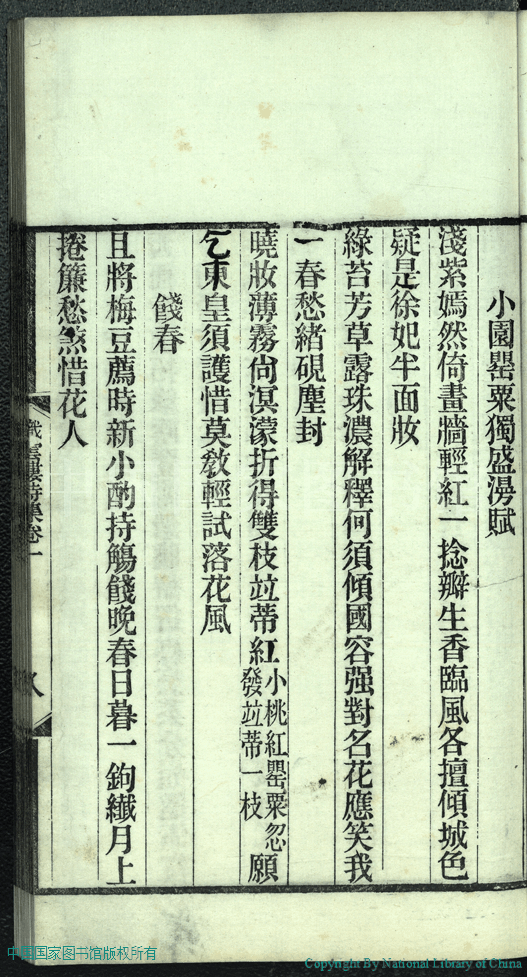 小園罌粟獨盛漫賦
淺紫嫣然倚畫牆輕紅一捻瓣生香臨風各擅傾城色
疑是徐妃半面妝
綠苔芳草露珠濃解釋何須傾國容强對名花應笑我
一春愁緒硯塵封
曉妝薄霧尙溟濛折得雙枝竝蒂紅小桃紅罌粟忽發竝蒂一枝願
乞東皇須護惜莫敎輕試落花風
餞春
且將梅豆薦時新小酌持觴餞晚春日暮一鉤纖月上
捲簾愁煞惜花人
織雲樓詩集卷一
八
中国国家图书馆版权所有
Copyright By National Library of China